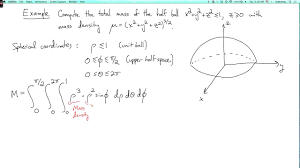 Example: Compute the total mass of the half ball x²+y²+z²≤1, z≥0 with
mass density μ = (x²+y²+z²)^3/2.
Spherical coordinates: ρ≤1 (unit ball)
0≤ϕ≤π/2 (upper half space)
0≤θ≤2π
M = ∫₀^π/2 ∫₀^2π ∫₀^1 ρ³ · ρ² sinϕ dρ dθ dϕ
Mass
density
z
y
x